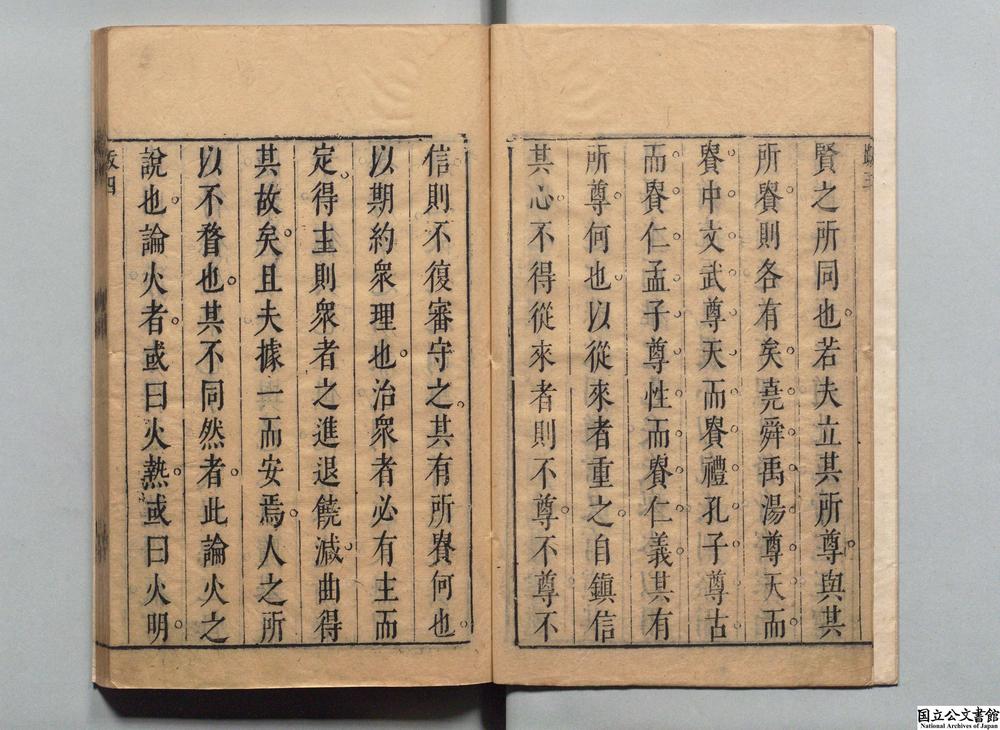 賢之所同也。若夫立其所尊與其
所賽則各有矣。堯舜禹湯尊天而。
賽中。文武尊天而賽禮。孔子尊古。
而賽仁。孟子尊性而賽仁義。其有
所尊何也。以從來者重之。自鎮信
其心。不得從來者則不尊。不尊不
信則不復審守之。其有所賽何也。
以期約衆理也。治衆者必有主而
定。得主則衆者之進退饒減。曲得
其故矣。且夫據一而安焉。人之所
以不瞀也。其不同然者。此論火之
說也。論火者。或曰火熱。或曰火明。
四
国立公文書館
National Archives of Japan